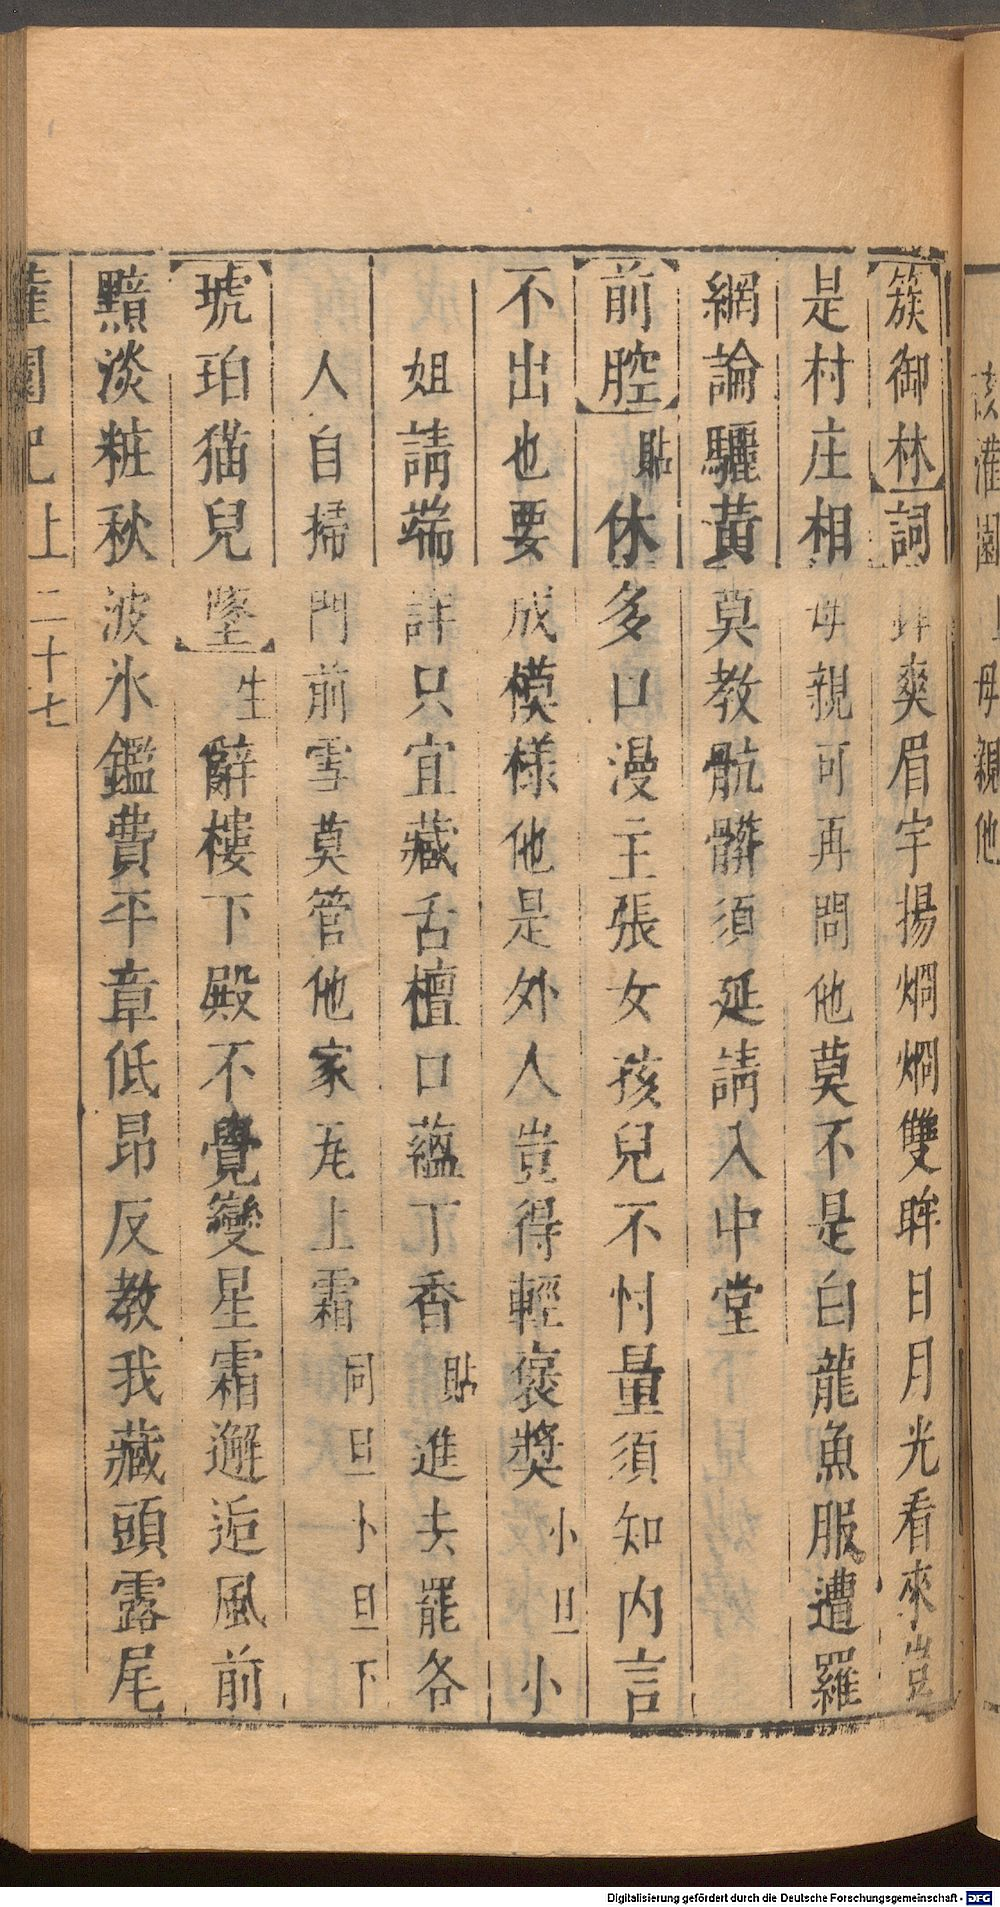 簇御林詞爽眉宇揚烱烱雙眸日月光看來豈
是村庄相母親可再問他莫不是白龍魚服遭羅
網論驪黃莫教骯髒須延請入中堂
前腔貼休多口漫主張女孩兒不忖量須知內言
不出也要成模樣他是外人豈得輕褒獎小旦小
姐請端詳只宜藏舌檀口蘊丁香貼進去罷各
人自掃門前雪莫管他家瓦上霜同旦卜旦下
琥珀猫兒墜生辭樓下殿不覺變星霜邂逅風前
黯淡粧秋波氷鑑費平章低昂反教我藏頭露尾
園記上 二十七
灌園
母親他
Digitalisierung gefördert durch die Deutsche Forschungsgemeinschaft - DFG